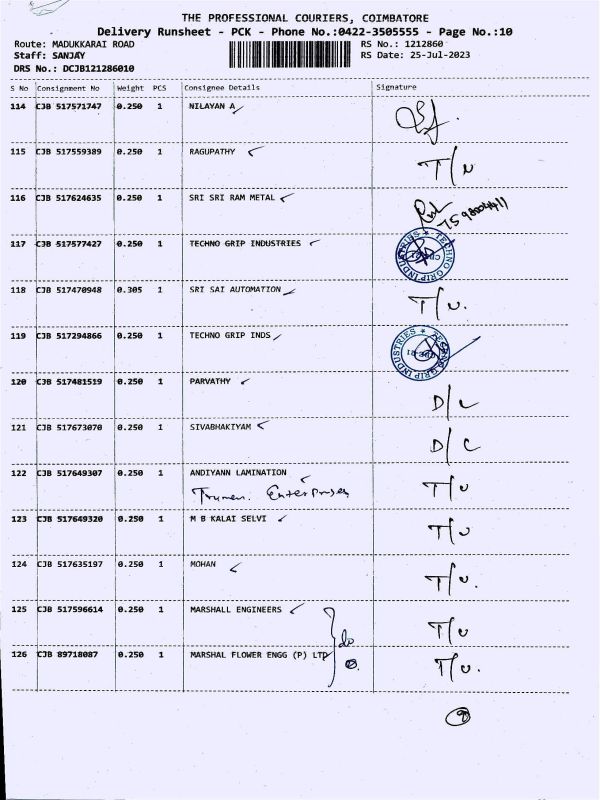 THE PROFESSIONAL COURIERS, COIMBATORE
Delivery Runsheet - PCK - Phone No.:0422-3505555 - Page No.:10
Route: MADUKKARAI ROAD RS No.: 1212860
Staff: SANJAY RS Date: 25-Jul-2023
DRS No.: DCJB121286010
S No Consignment No Weight PCS Consignee Details Signature
114 CJB 517571747 0.250 1 NILAYAN A
115 CJB 517559389 0.250 1 RAGUPATHY T/U
116 CJB 517624635 0.250 1 SRI SRI RAM METAL
117 CJB 517577427 0.250 1 TECHNO GRIP INDUSTRIES TECHNO GRIP INDUSTRIES
118 CJB 517470948 0.305 1 SRI SAI AUTOMATION T/U.
119 CJB 517294866 0.250 1 TECHNO GRIP INDS TECHNO GRIP INDUSTRIES
120 CJB 517481519 0.250 1 PARVATHY D/L
121 CJB 517673070 0.250 1 SIVABHAKIYAM D/C
122 CJB 517649307 0.250 1 ANDIYANN LAMINATION T/U
Enterprises
123 CJB 517649320 0.250 1 M B KALAI SELVI T/U
124 CJB 517635197 0.250 1 MOHAN T/U.
125 CJB 517596614 0.250 1 MARSHALL ENGINEERS T/U
do
126 CJB 89718087 0.250 1 MARSHAL FLOWER ENGG (P) LTD T/U.
9